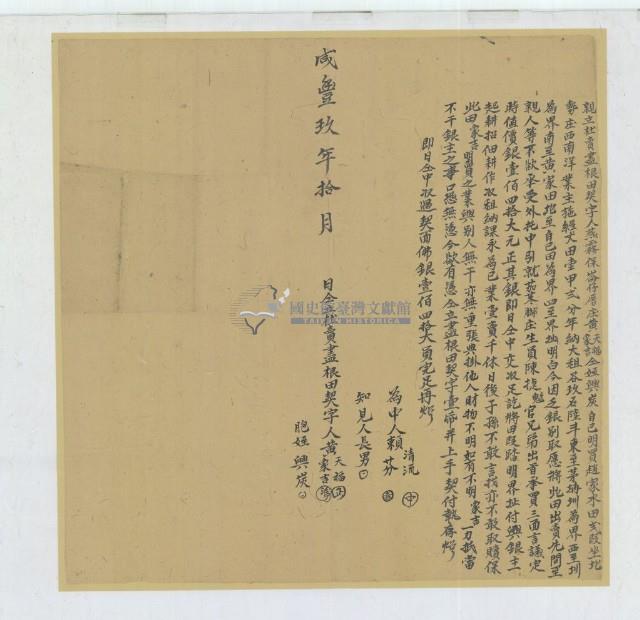 親立杜賣盡根田契字人燕霧保崙仔厝庄黃天福家吉仝姪興炭自己明買趙家水田貳段坐址
庄西南洋業主施經丈田壹甲弍分年納大租谷玖石陸斗東至茅埔圳為界西至圳
為界南至黃家田北至自己田為界四至界址明白今因乏銀別取應將此田出賣先問至
親人等不欲承受外托中引就茄苳腳庄生員陳捷魁官兄弟出首承買三面言議定
時值價銀壹佰四拾大元正其銀即日仝中交收足訖將田段踏明界址付與銀主
起耕招佃耕作收租納課永為己業壹賣千休日後子孫不敢言找亦不敢取贖保
此田家吉明買之業與別人無干亦無重張典掛他人財物不明如有不明家吉一力抵當
不干銀主之事口恐無憑今欲有憑仝立盡根田契字壹帋并上手契付執存炤
即日仝中收過契面佛銀壹佰四拾大員完足再炤
為中人賴清流 芬
知見人長男
日仝立賣盡根田契字人黃天福 家吉
胞姪興炭
咸豐玖年拾月
國史館臺灣文獻館
TAIWAN HISTORICA